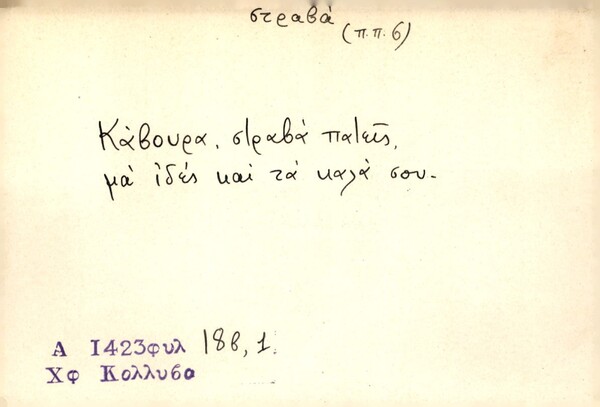 στραβά
(π.π. 6)
Κάβουρα, στραβά πατεῖς,
μά ἰδές και τά καλά σου.
Α 1423φυλ 188, 1.
Χφ Κολλυβα